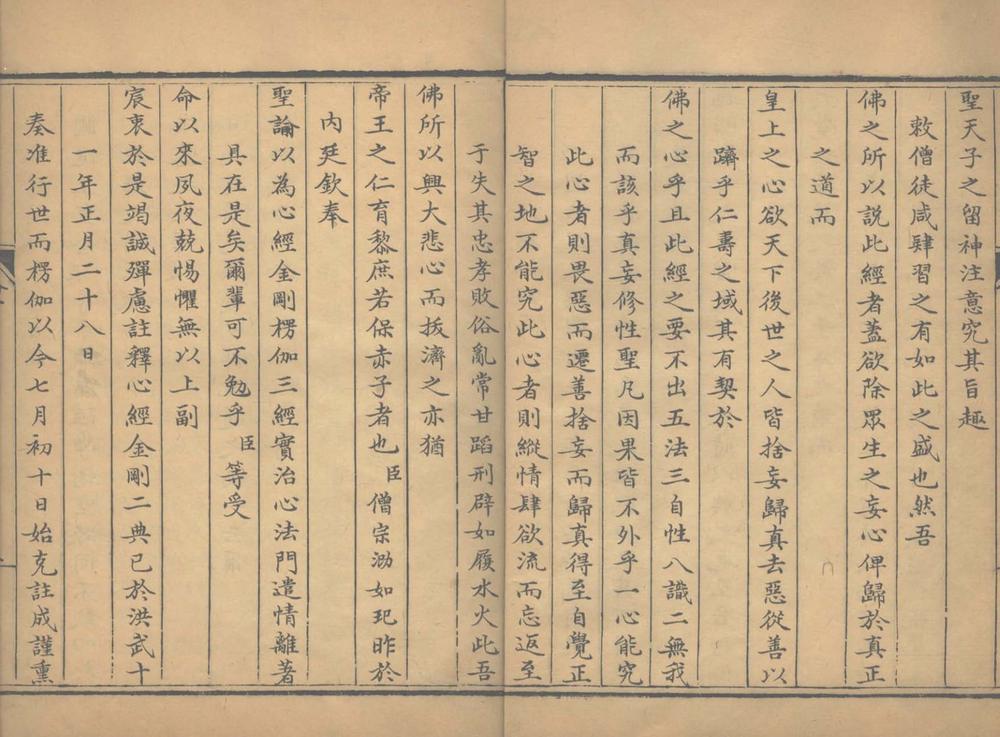 聖天子之留神注意究其旨趣
敕僧徒咸肄習之有如此之盛也然吾
佛之所以說此經者蓋欲除眾生之妄心俾歸於真正
之道而
皇上之心欲天下後世之人皆捨妄歸真去惡從善以
躋乎仁壽之域其有契於
佛之心乎且此經之要不出五法三自性八識二無我
而該乎真妄修性聖凡因果皆不外乎一心能究
此心者則畏惡而遷善捨妄而歸真得至自覺正
智之地不能究此心者則縱情肆欲流而忘返至
于失其忠孝敗俗亂常甘蹈刑辟如履水火此吾
佛所以興大悲心而拔濟之亦猶
帝王之仁育黎庶若保赤子者也臣僧宗泐如玘昨於
內廷欽奉
聖論以為心經金剛楞伽三經實治心法門遣情離著
具在是矣爾輩可不勉乎臣等受
命以來夙夜兢惕懼無以上副
宸衷於是竭誠殫慮註釋心經金剛二典已於洪武十
一年正月二十八日
奏准行世而楞伽以今七月初十日始克註成謹熏